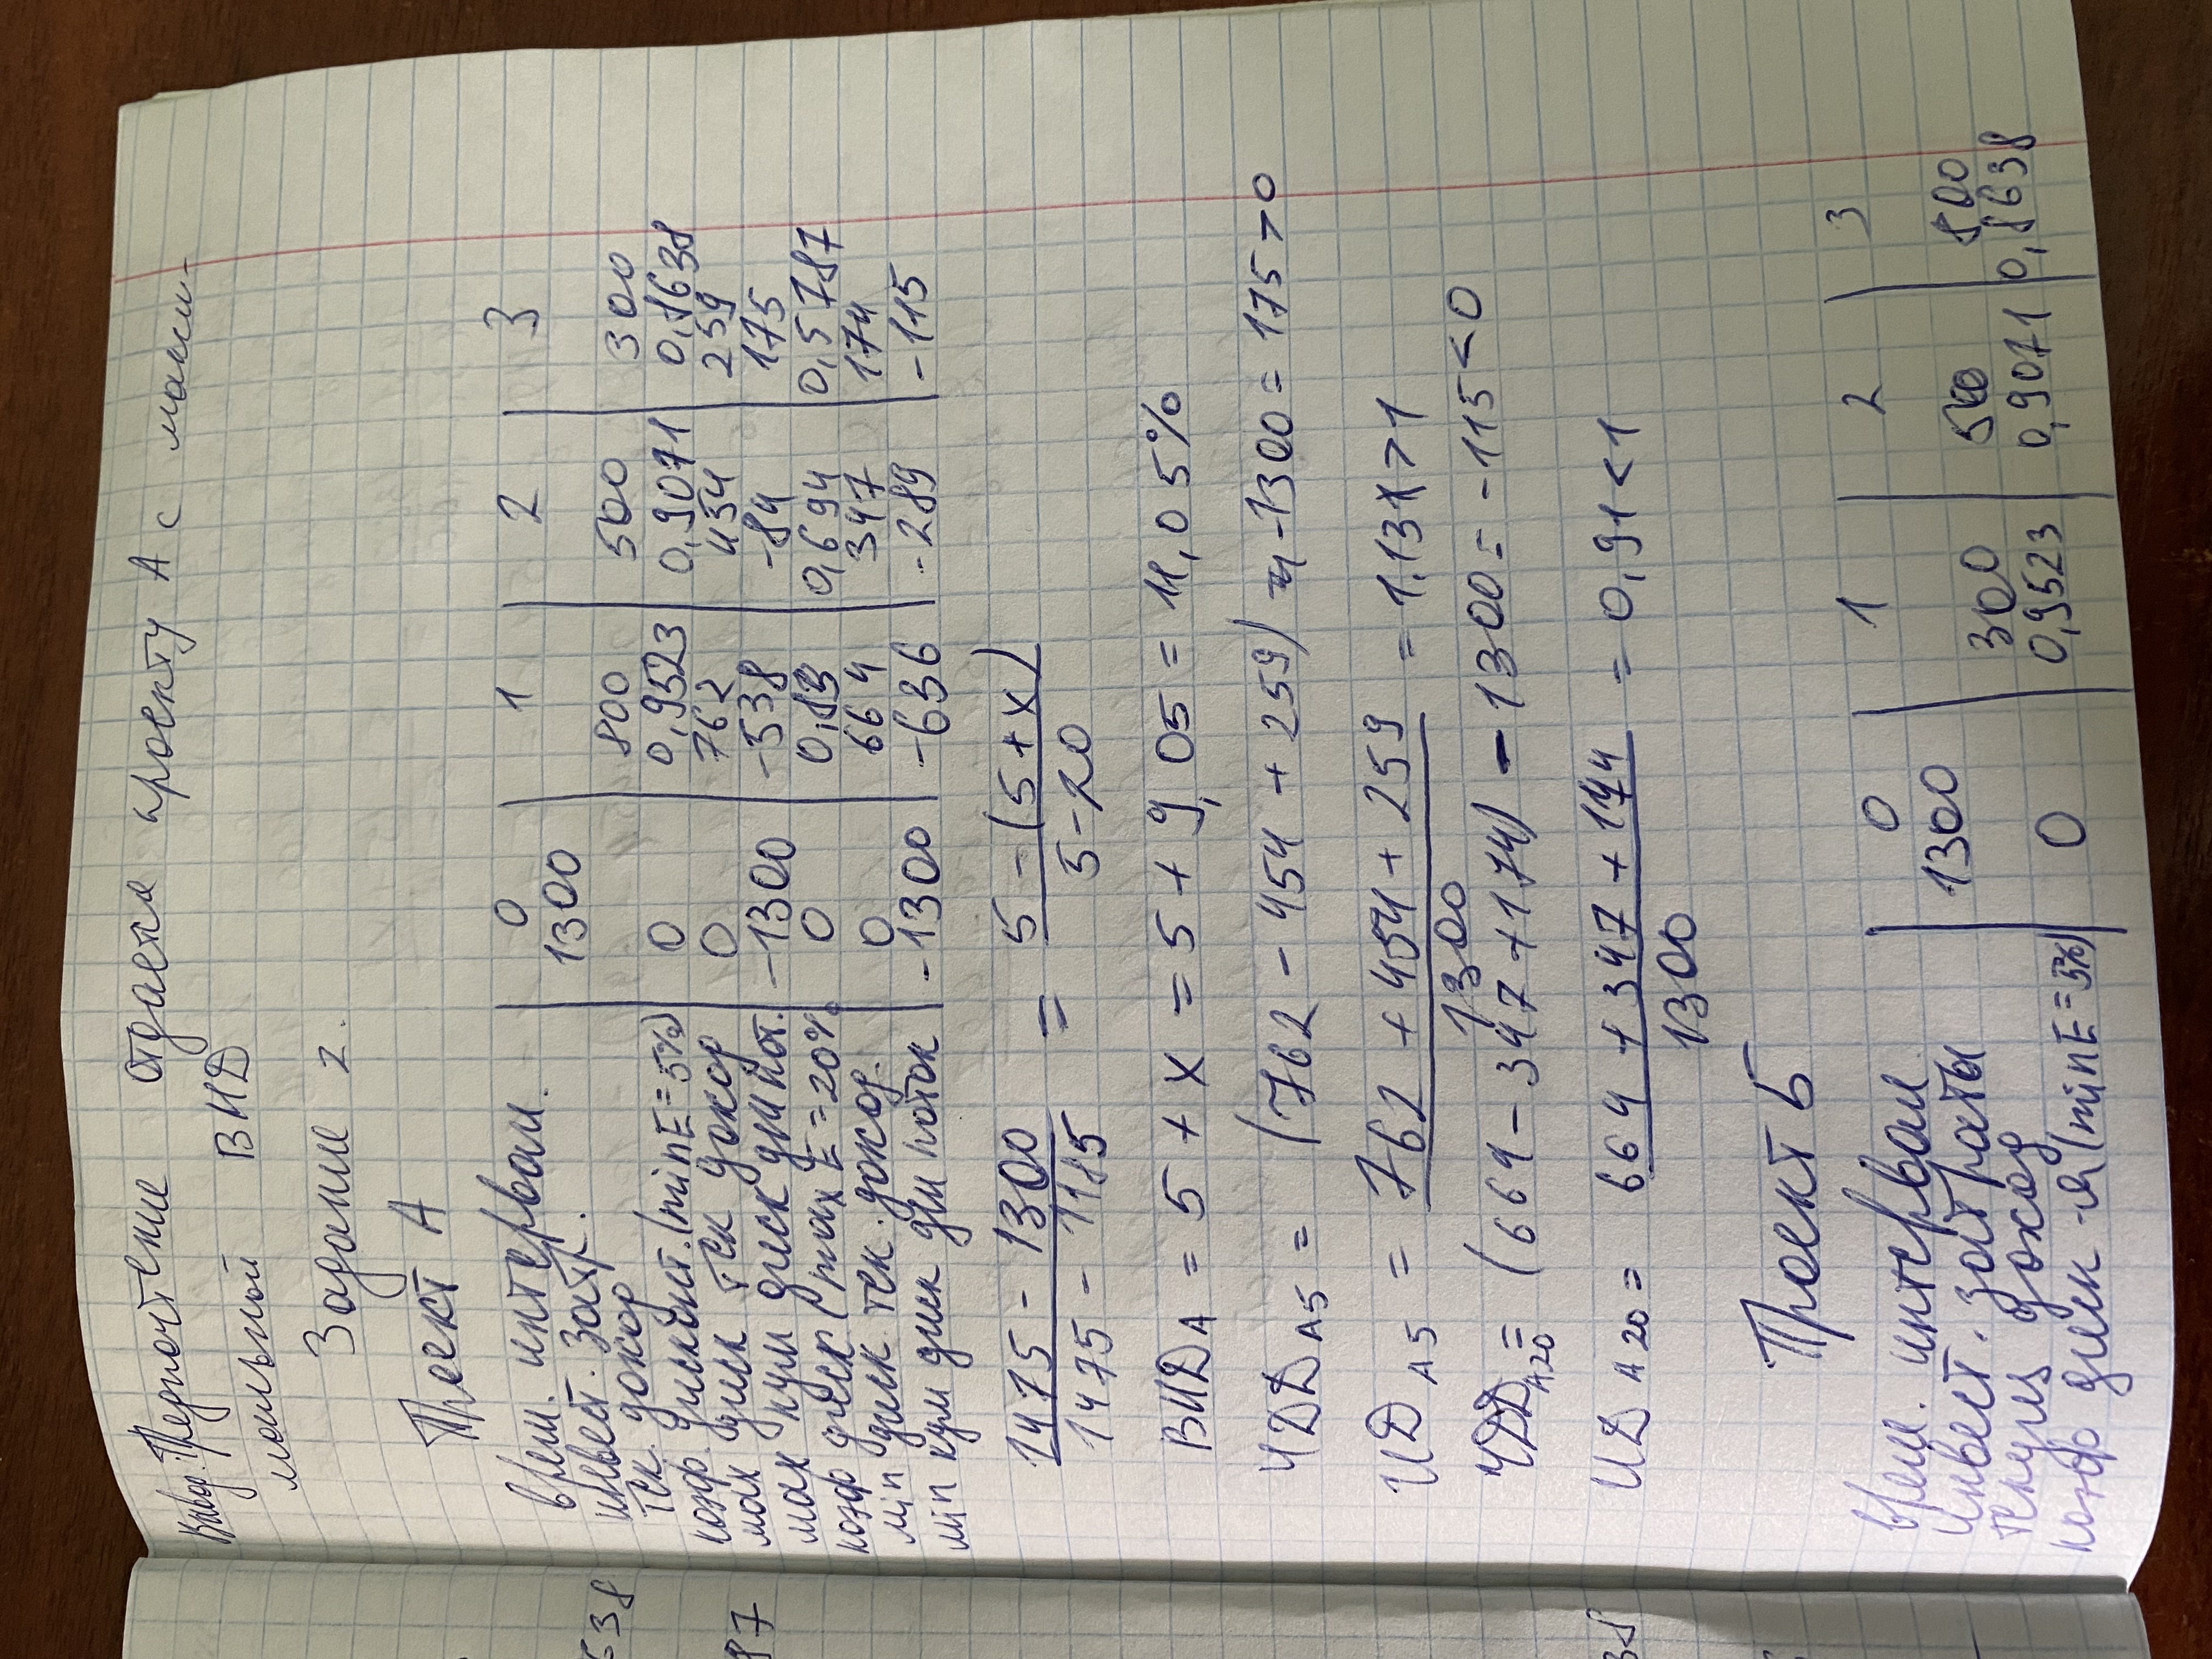 Вывод: Предпочтение отдается проекту А с макси-
мальной ВНД
Задание 2.
Проект А
врем. интервал. 0 1 2 3
инвест. затр. 1300
тек. доход 800 500 300
коэф. дисконт. (min E = 5%) 0 0,9523 0,9071 0,8638
мах диск тек доход 0 762 454 259
мах кум диск ден пот. -1300 -538 -84 175
коэф диск (max E = 20% 0 0,83 0,694 0,5787
min диск. тек. доход. 0 664 347 174
min кум диск ден поток -1300 -636 -289 -115
1475 - 1300 / 1475 - 1185 = 5 - (5+x) / 5 - 20
ВНД А = 5 + x = 5 + 9,05 = 11,05%
ЧДД А5 = (762 - 454 + 259) - 1300 = 175 > 0
ИД А5 = 762 + 454 + 259 / 1300 = 1.13 > 1
ЧДД А20 = (664 - 347 + 174) - 1300 = -115 < 0
ИД А20 = 664 + 347 + 174 / 1300 = 0,91 < 1
Проект Б
врем. интервал 0 1 2 3
Инвест. затраты 1300
текущ доход 300 500 800
коэф диск-я (min E = 5%) 0 0,9523 0,9071 0,8638
538
97
38